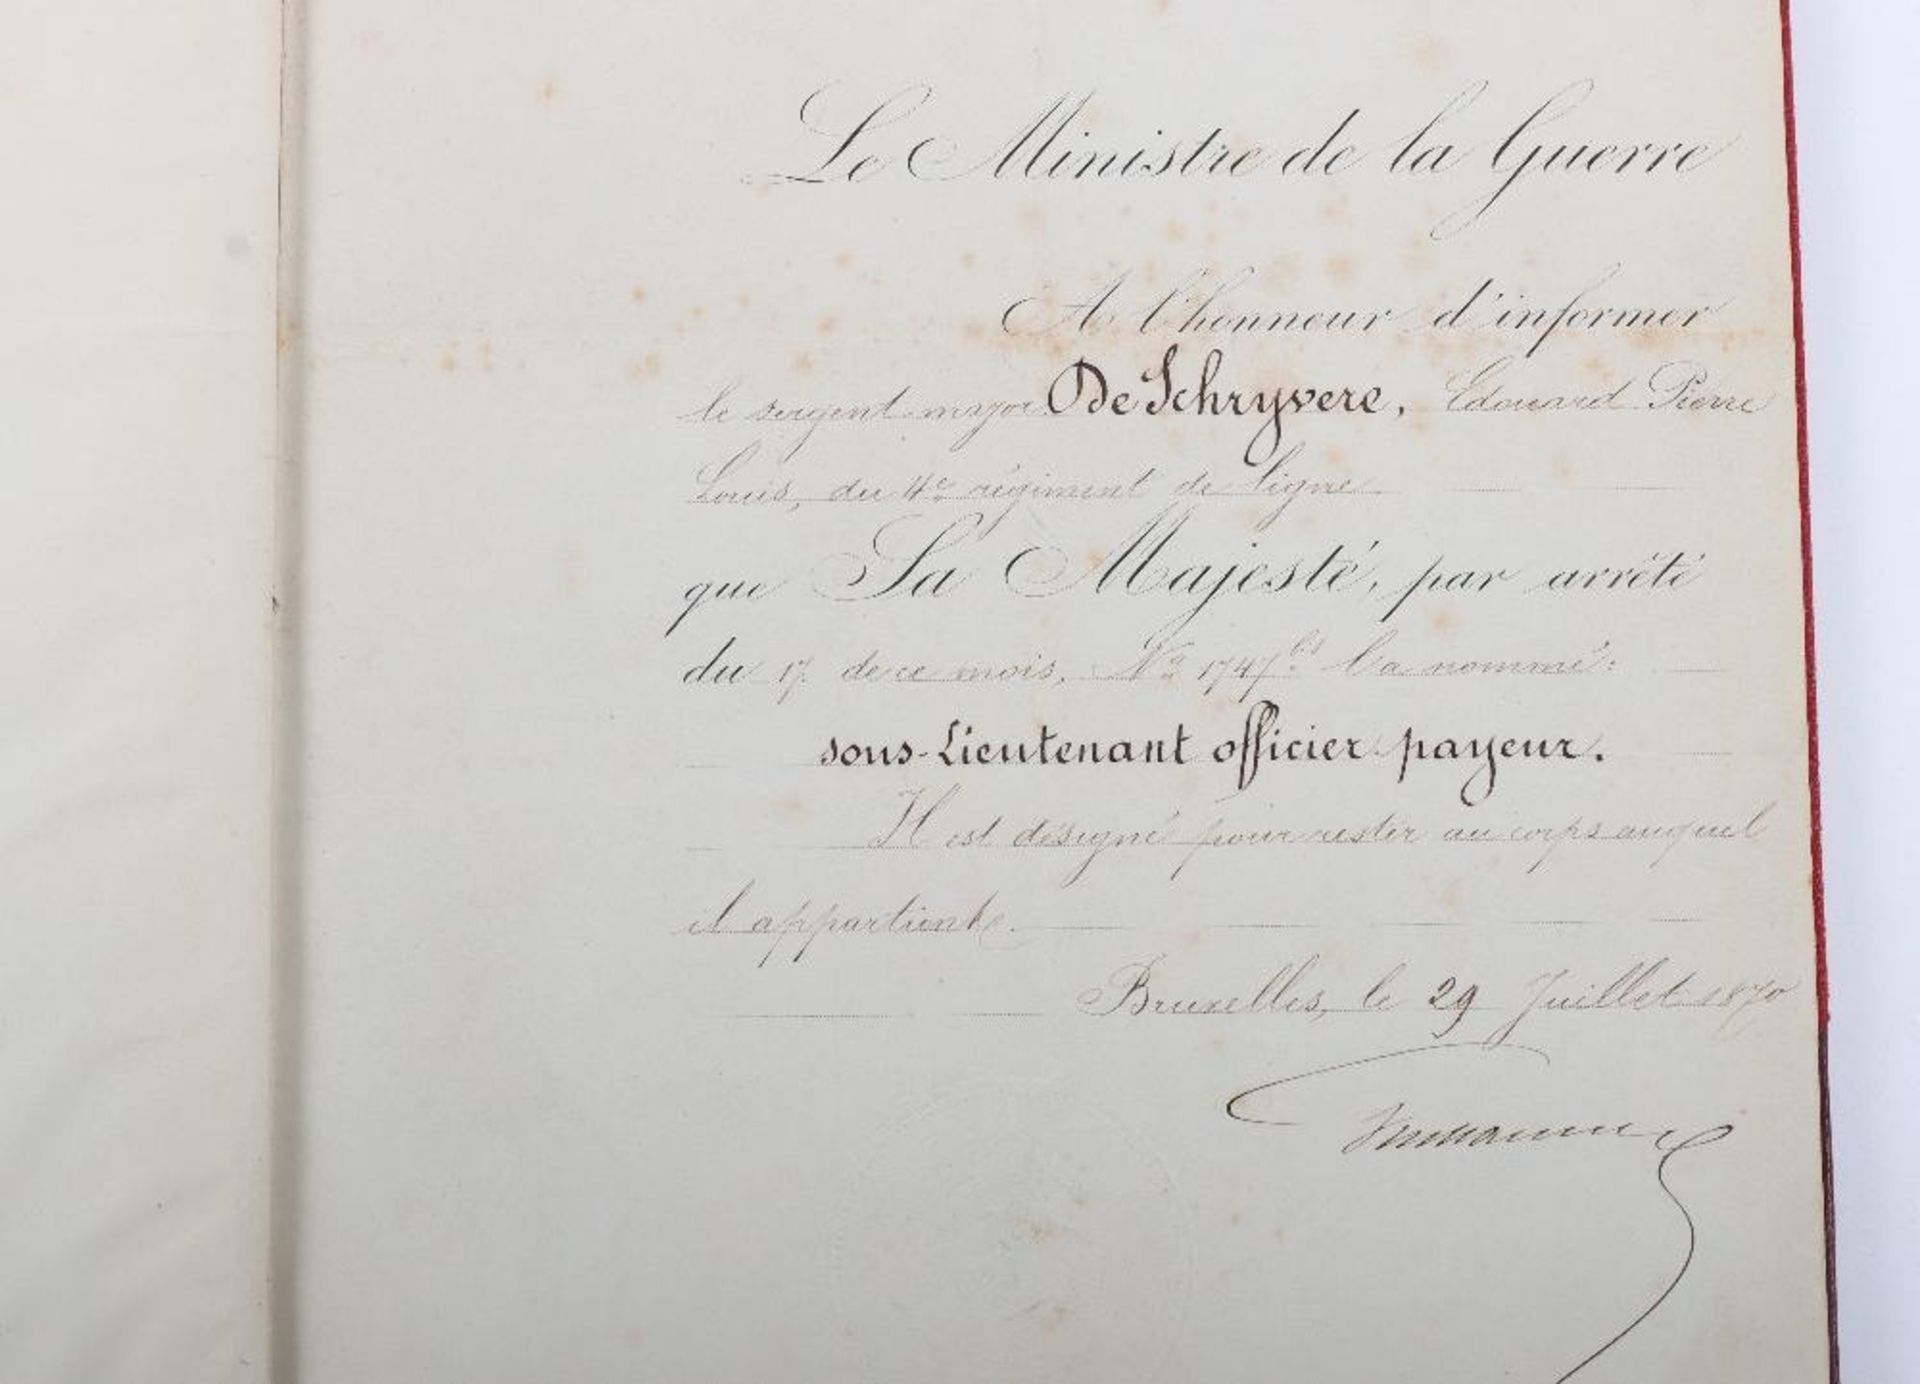 Le Ministre de la Guerre
A l'honneur d'informer
le sergent major De Schryvere, Edouard Pierre
Louis, du 4e régiment de ligne
que Sa Majesté, par arrêté
du 17 de ce mois, No 1747bis l'a nommé:
sous-Lieutenant officier payeur.
Il est désigné pour rester au corps auquel
il appartient.
Bruxelles, le 29 Juillet 1870